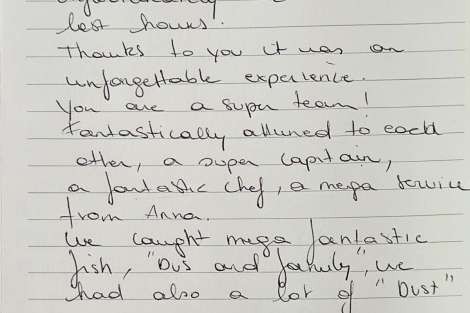 last hours!
Thanks to you it was an
unforgettable experience.
You are a super team!
Fantastically attuned to each
other, a super Captain,
a fantastic chef, a mega service
from Anna.
We caught mega fantastic
fish, "Dus and family", we
had also a lot of "Dust"